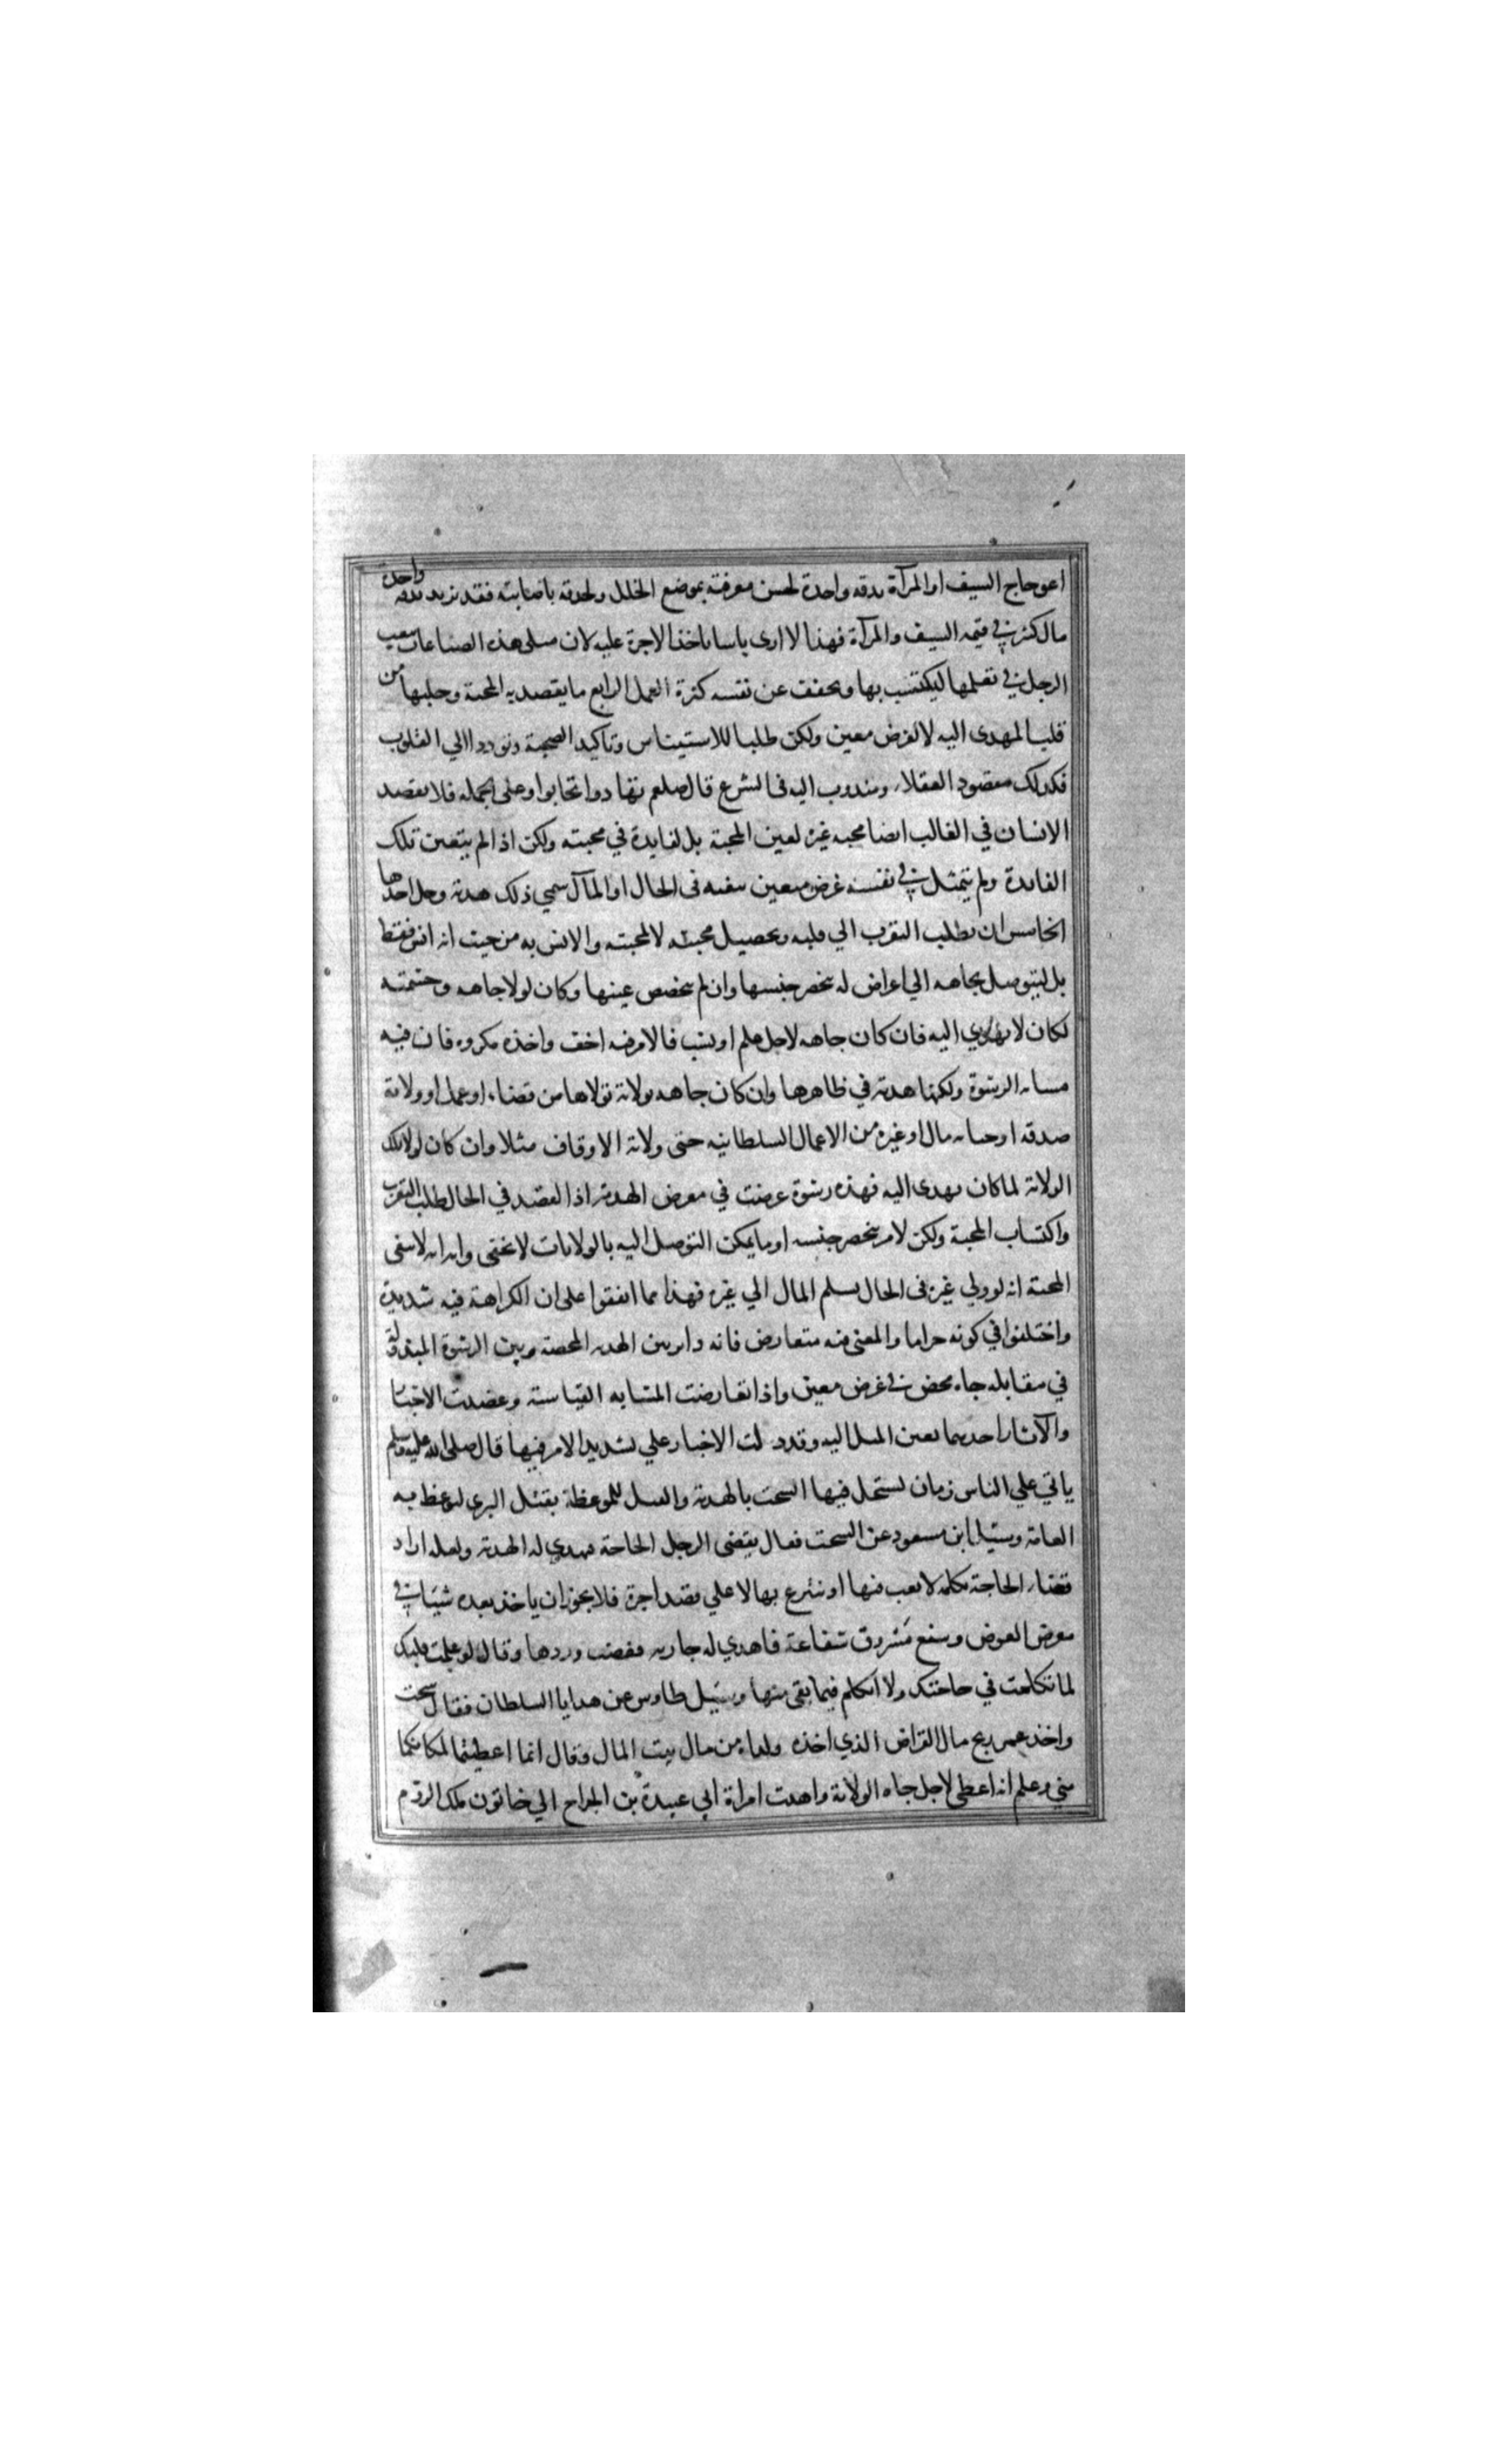 اعوجاج السيف او المرآة بدقة واحدة لحسن معرفته بموضع الخلل ولحدقه باصابته فقد يزيد بدقة واحدة
مال كثير في قيمة السيف والمرآة فهذا لا ارى باسا باخذ الاجرة عليه لان مثل هذه الصناعات يتعب
الرجل في تعلمها ليكتسب بها ويخفف عن نفسه كثرة العمل الرابع ما يقصد به المحبة وجلبها من
قلب المهدى اليه لا لغرض معين ولكن طلبا للاستيناس وتاكيد الصحبة وتوددا الي القلوب
فكذلك مقصود العقلاء ومندوب اليه في الشرع قال صلعم تهادوا تحابوا وعلى الجملة فلا يقصد
الانسان في الغالب ايضا محبة غيره لعين المحبة بل لفايدة في محبته ولكن اذا لم يتعين تلك
الفايدة ولم يتمثل في نفسه غرض معين يبغيه في الحال او المآل سمي ذلك هدية وحل اخذها
الخامس ان يطلب التقرب الي قلبه وتحصيل محبته لا لمحبته والانس به من حيث انه انس فقط
بل ليتوصل بجاهه الي اعراض له ينحصر جنسها وان لم ينحصر عينها وكان لولا جاهه وحشمته
لكان لا يهدي اليه فان كان جاهه لاجل علم او نسب فالامر فيه اخف واخذه مكروه فان فيه
مشابهة الرشوة ولكنها هدية في ظاهرها وان كان جاهه بولاية تولاها من قضاء او عمل او ولاية
صدقة او جباية مال او غيره من الاعمال السلطانية حتى ولاية الاوقاف مثلا وان كان لولا تلك
الولاية لما كان يهدى اليه فهذه رشوة عرضت في معرض الهدية اذ القصد في الحال طلب التقرب
واكتساب المحبة ولكن لامر ينحصر جنسه او ما يمكن التوصل اليه بالولايات لا يخفى واية انه لا يبغى
المحبة انه لو ولي غيره في الحال لسلم المال الي غيره فهذا مما اتفقوا على ان الكراهة فيه شديدة
واختلفوا في كونه حراما والمعنى فيه متعارض فانه داير بين الهدية المحضة وبين الرشوة المبذولة
في مقابلة جاه محض في غرض معين واذا تعارضت المشابه القياسية وعضدت الاخبار
والآثار احديهما تعين الميل اليه وقد دلت الاخبار علي تشديد الامر فيها قال صلى الله عليه وسلم
ياتي علي الناس زمان يستحل فيها السحت بالهدية والقتل للموعظة يقتل البري ليوعظ به
العامة وسئل ابن مسعود عن السحت فقال يقضى الرجل الحاجة فيهدي له الهدية ولعله اراد
قضاء الحاجة بكلمة لا تعب فيها او تبرع بها لا علي قصد اجرة فلا يجوز ان ياخذ بعده شيئا في
معرض العوض وشفع مسروق شفاعة فاهدي له جارية فغضب وردها وقال لو علمت ما في قلبك
لما تكلمت في حاجتك ولا اتكلم فيما بقى منها وسئل طاوس عن هدايا السلطان فقال سحت
واخذ عمر ربح مال القراض الذي اخذه ولداه من مال بيت المال وقال انما اعطيتما لمكانكما
مني وعلم انه اعطى لاجل جاه الولاية واهدت امراة ابي عبيدة بن الجراح الي خاتون ملك الروم